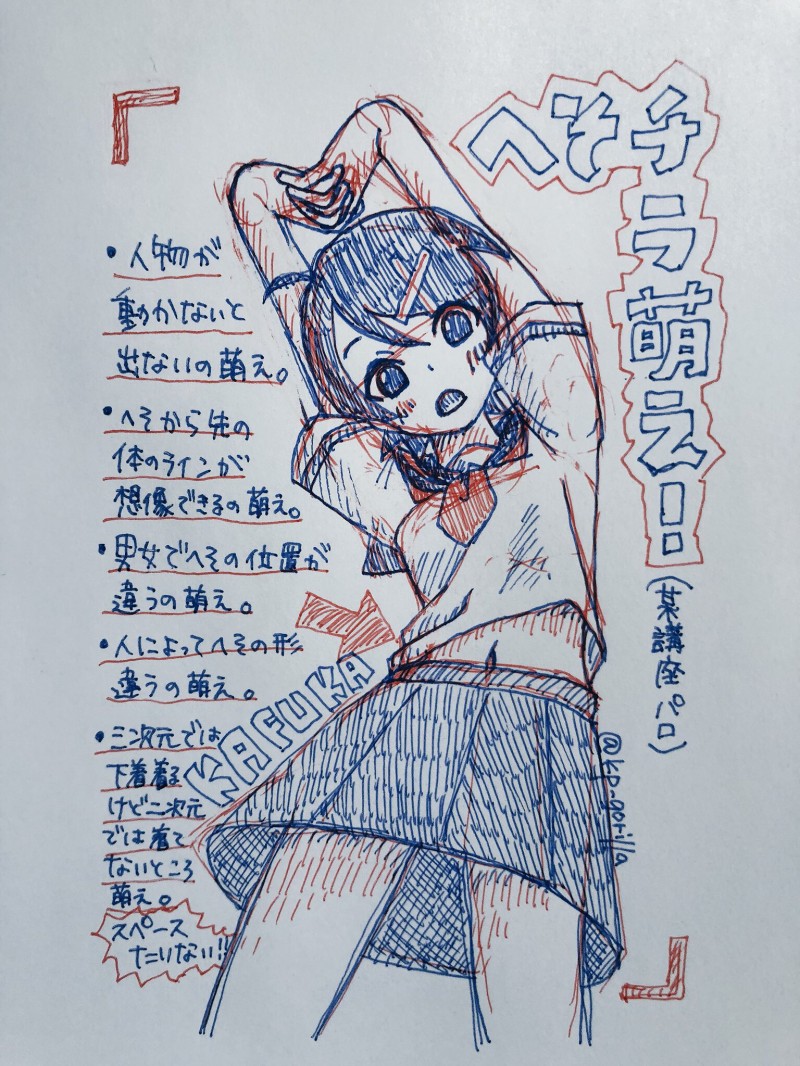 へそチラ萌え!!
(某講座パロ)
・人物が
動かないと
出ないの萌え。
・へそから先の
体のラインが
想像できるの萌え。
・男女でへその位置が
違うの萌え。
・人によってへその形
違うの萌え。
・三次元では
下着着る
けど二次元
では着て
ないところ
萌え。
スペース
たりない!!
KAFUKA
@kp_gorilla